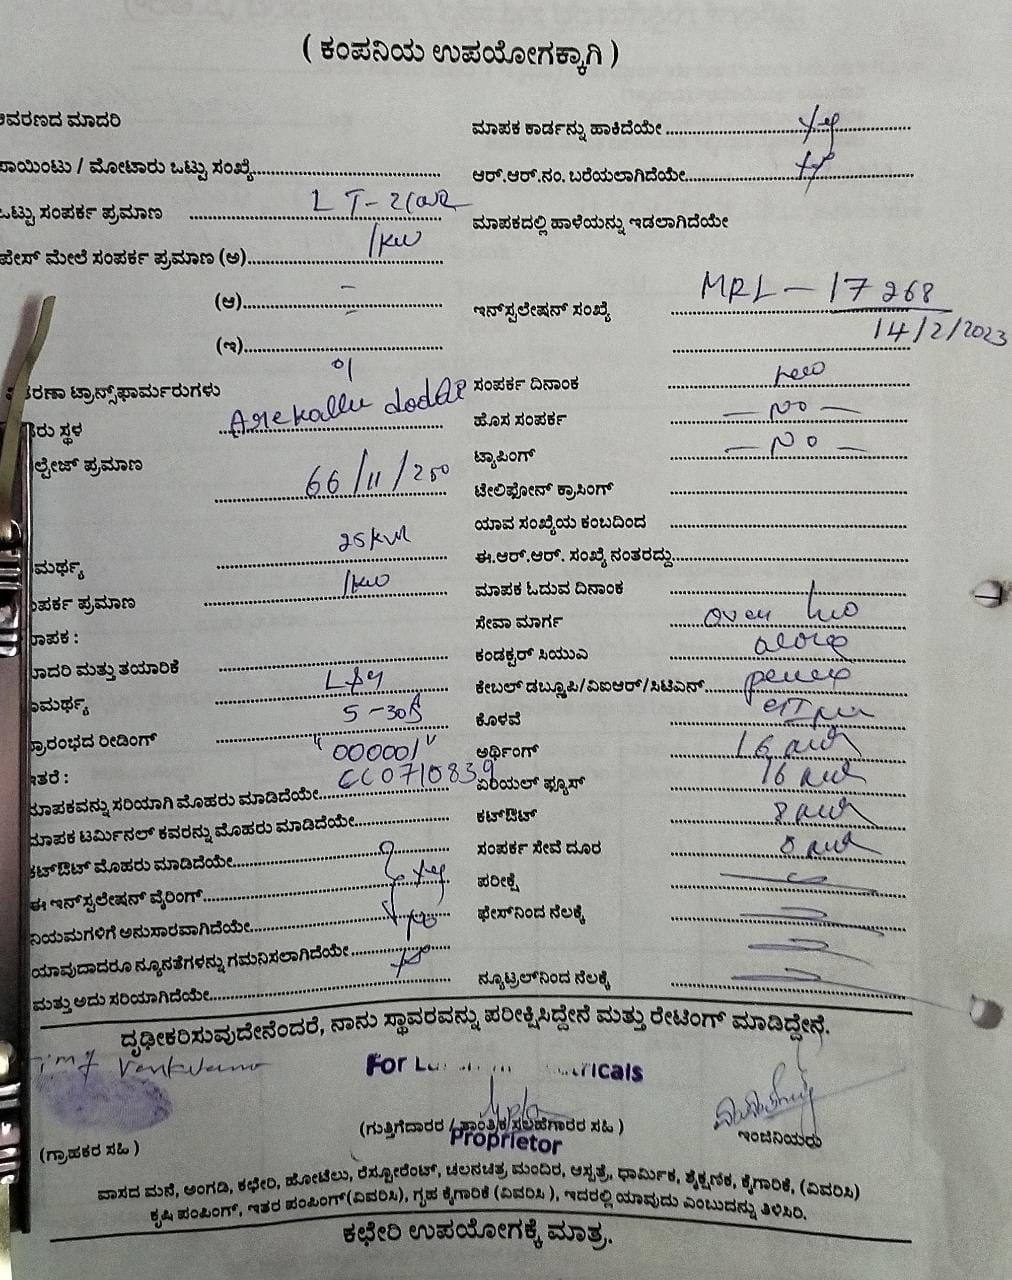 ( ಕಂಪನಿಯ ಉಪಯೋಗಕ್ಕಾಗಿ )
ಆವರಣದ ಮಾದರಿ
ಪಾಯಿಂಟು / ಮೋಟಾರು ಒಟ್ಟು ಸಂಖ್ಯೆ
ಒಟ್ಟು ಸಂಪರ್ಕ ಪ್ರಮಾಣ LT-2
ಪೇಸ್ ಮೇಲೆ ಸಂಪರ್ಕ ಪ್ರಮಾಣ (ಅ) 1kw
(ಆ) -
(ಇ)
ವಿತರಣಾ ಟ್ರಾನ್ಸ್‌ಫಾರ್ಮರುಗಳು
ಇರು ಸ್ಥಳ Arekallu dodde
ಲ್ಟೇಜ್ ಪ್ರಮಾಣ 66/11/250
ಮರ್ಥ್ಯ 25kva
ಂಪರ್ಕ ಪ್ರಮಾಣ 1kw
ಾಪಕ :
ಾದರಿ ಮತ್ತು ತಯಾರಿಕೆ
ಾಮರ್ಥ್ಯ L&G
ಪ್ರಾರಂಭದ ರೀಡಿಂಗ್ 5-30A
ಇತರೆ : "000001"
ಮಾಪಕವನ್ನು ಸರಿಯಾಗಿ ಮೊಹರು ಮಾಡಿದೆಯೇ CC0710839
ಮಾಪಕ ಟರ್ಮಿನಲ್ ಕವರನ್ನು ಮೊಹರು ಮಾಡಿದೆಯೇ
ಕಟ್‌ಔಟ್ ಮೊಹರು ಮಾಡಿದೆಯೇ
ಈ ಇನ್‌ಸ್ಟಲೇಷನ್ ವೈರಿಂಗ್ yes
ನಿಯಮಗಳಿಗೆ ಅನುಸಾರವಾಗಿದೆಯೇ
ಯಾವುದಾದರೂ ನ್ಯೂನತೆಗಳನ್ನು ಗಮನಿಸಲಾಗಿದೆಯೇ
ಮತ್ತು ಅದು ಸರಿಯಾಗಿದೆಯೇ
ಮಾಪಕ ಕಾರ್ಡನ್ನು ಹಾಕಿದೆಯೇ yes
ಆರ್.ಆರ್.ನಂ. ಬರೆಯಲಾಗಿದೆಯೇ
ಮಾಪಕದಲ್ಲಿ ಹಾಳೆಯನ್ನು ಇಡಲಾಗಿದೆಯೇ
ಇನ್‌ಸ್ಟಲೇಷನ್ ಸಂಖ್ಯೆ MRL-17268
14/2/2023
ಸಂಪರ್ಕ ದಿನಾಂಕ new
ಹೊಸ ಸಂಪರ್ಕ - No -
ಟ್ಯಾಪಿಂಗ್ - No -
ಟೇಲಿಫೋನ್ ಕ್ರಾಸಿಂಗ್
ಯಾವ ಸಂಖ್ಯೆಯ ಕಂಬದಿಂದ
ಈ.ಆರ್.ಆರ್. ಸಂಖ್ಯೆ ನಂತರದ್ದು
ಮಾಪಕ ಓದುವ ದಿನಾಂಕ
ಸೇವಾ ಮಾರ್ಗ over
ಕಂಡಕ್ಟರ್ ಸಿಯುಎ
ಕೇಬಲ್ ಡಬ್ಲೂಪಿ/ವಿಐಆರ್/ಸಿಟಿಎಸ್
ಕೊಳವೆ
ಅರ್ಥಿಂಗ್ 16
ಏರಿಯಲ್ ಫ್ಯೂಸ್ 16
ಕಟ್‌ಔಟ್ 8
ಸಂಪರ್ಕ ಸೇವೆ ದೂರ 8
ಪರೀಕ್ಷೆ
ಫೇಸ್‌ನಿಂದ ನೆಲಕ್ಕೆ
ನ್ಯೂಟ್ರಲ್‌ನಿಂದ ನೆಲಕ್ಕೆ
ದೃಢೀಕರಿಸುವುದೇನೆಂದರೆ, ನಾನು ಸ್ಥಾವರವನ್ನು ಪರೀಕ್ಷಿಸಿದ್ದೇನೆ ಮತ್ತು ರೇಟಿಂಗ್ ಮಾಡಿದ್ದೇನೆ.
For
Proprietor
(ಗ್ರಾಹಕರ ಸಹಿ )
(ಗುತ್ತಿಗೆದಾರರ / ತಾಂತ್ರಿಕ ಸಲಹೆಗಾರರ ಸಹಿ )
ಇಂಜಿನಿಯರು
ವಾಸದ ಮನೆ, ಅಂಗಡಿ, ಕಛೇರಿ, ಹೋಟೆಲು, ರೆಸ್ಟೋರೆಂಟ್, ಚಲನಚಿತ್ರ ಮಂದಿರ, ಆಸ್ಪತ್ರೆ, ಧಾರ್ಮಿಕ, ಶೈಕ್ಷಣಿಕ, ಕೈಗಾರಿಕೆ, (ವಿವರಿಸಿ)
ಕೃಷಿ ಪಂಪಿಂಗ್, ಇತರ ಪಂಪಿಂಗ್ (ವಿವರಿಸಿ), ಗೃಹ ಕೈಗಾರಿಕೆ (ವಿವರಿಸಿ ), ಇದರಲ್ಲಿ ಯಾವುದು ಎಂಬುದನ್ನು ತಿಳಿಸಿರಿ.
ಕಛೇರಿ ಉಪಯೋಗಕ್ಕೆ ಮಾತ್ರ.